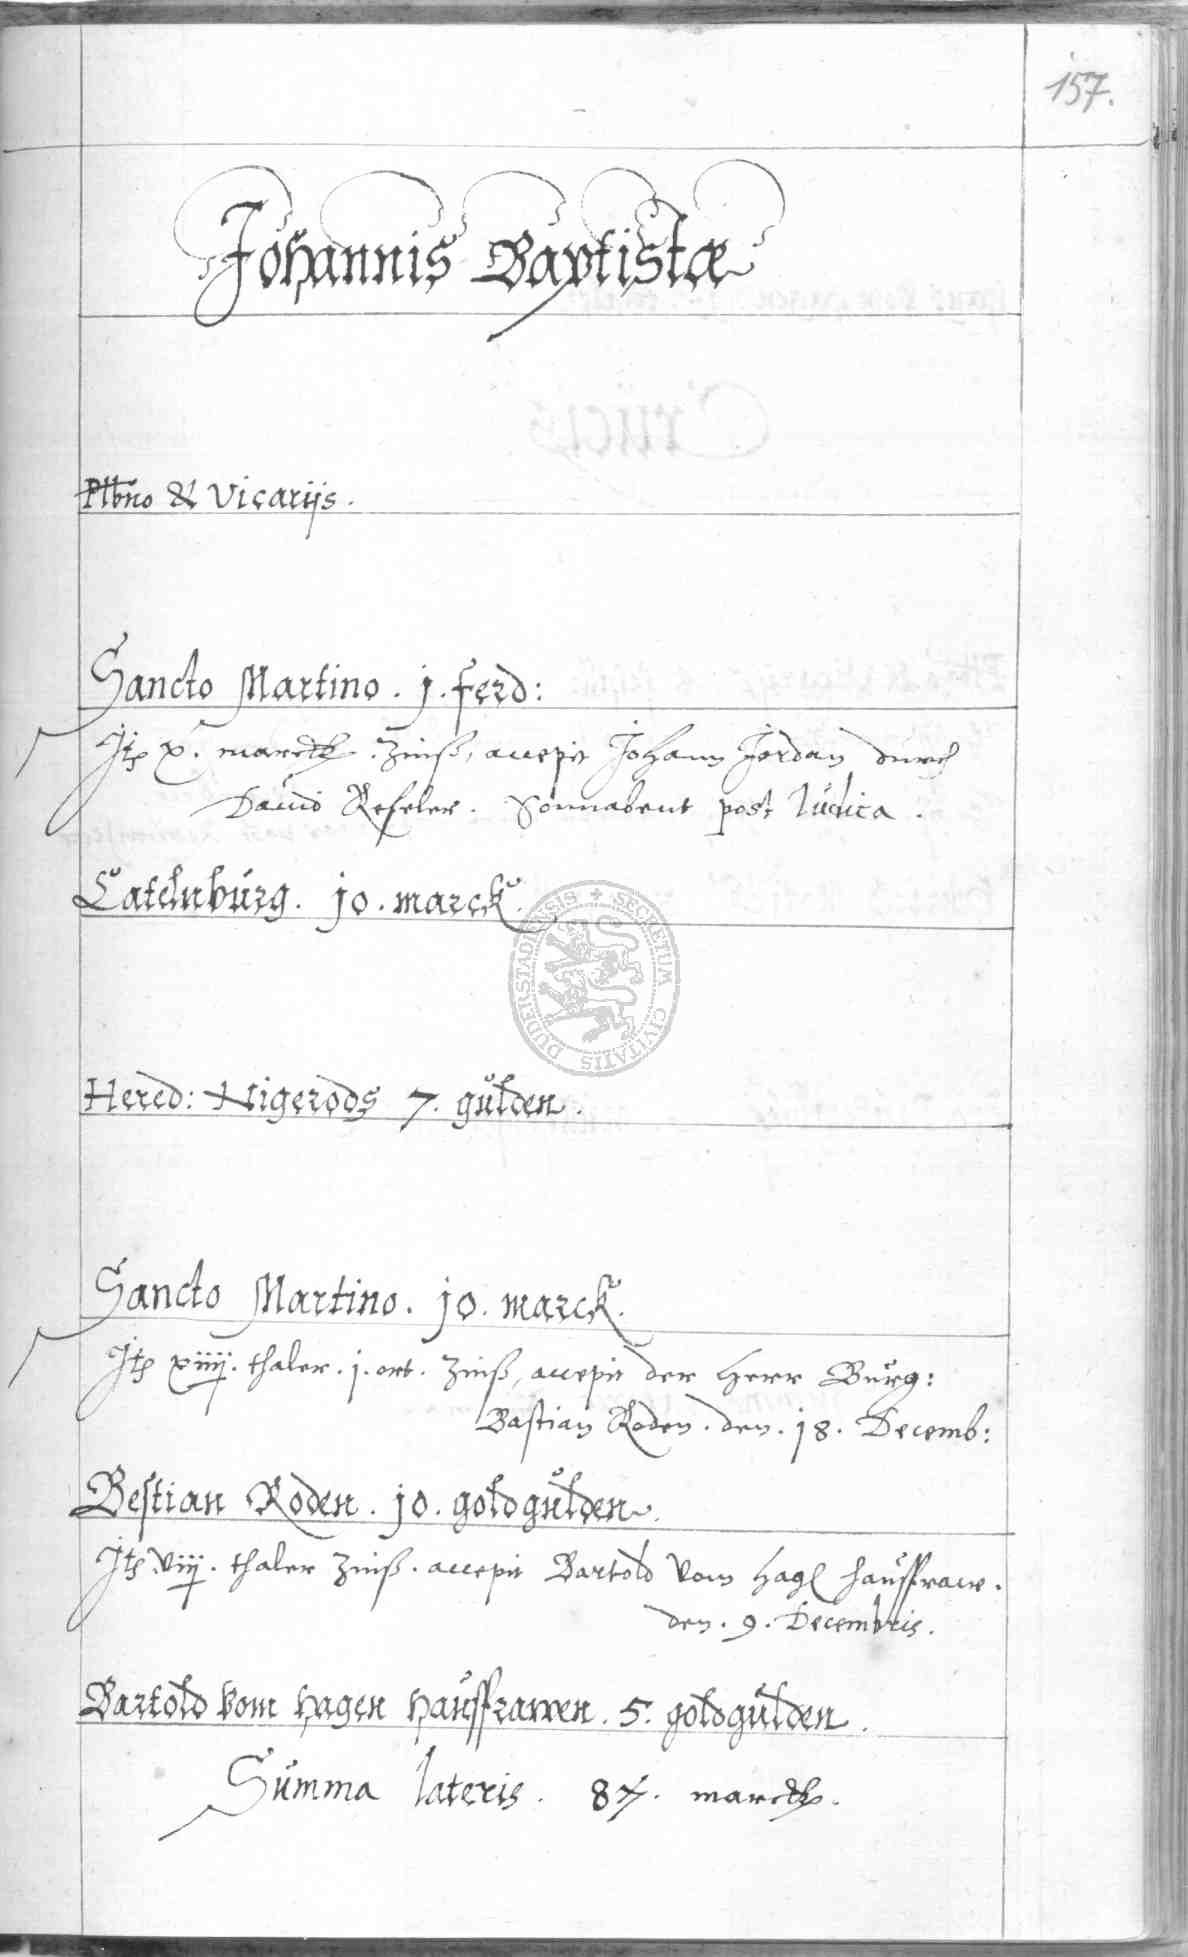 157.
Johannis Baptistæ
Plbno & Vicarijs.
Sancto Martino. j. ferd:
Jtꝫ x. marck. Zinß, accepit Johann Jordan durch
Dauid Keseler. Sonnabent post Iudica.
Catelnburg. jo. marck.
SECRETUM CIVITATIS DUDERSTADIENSIS
Hered: Nigerods 7. gulden.
Sancto Martino. jo. marck.
Jtꝫ xiiij. thaler. j. ort. Zinß, accepit der Herr Burg:
Bastian Roden. den. 18. Decemb:
Bestian Roden. jo. goldgulden.
Jtꝫ viij. thaler Zinß. accepit Bartold vom Hagen haussfraw.
den. 9. Decembris.
Bartold vom Hagen Haussfrawen. 5. goldgulden.
Summa lateris. marck.